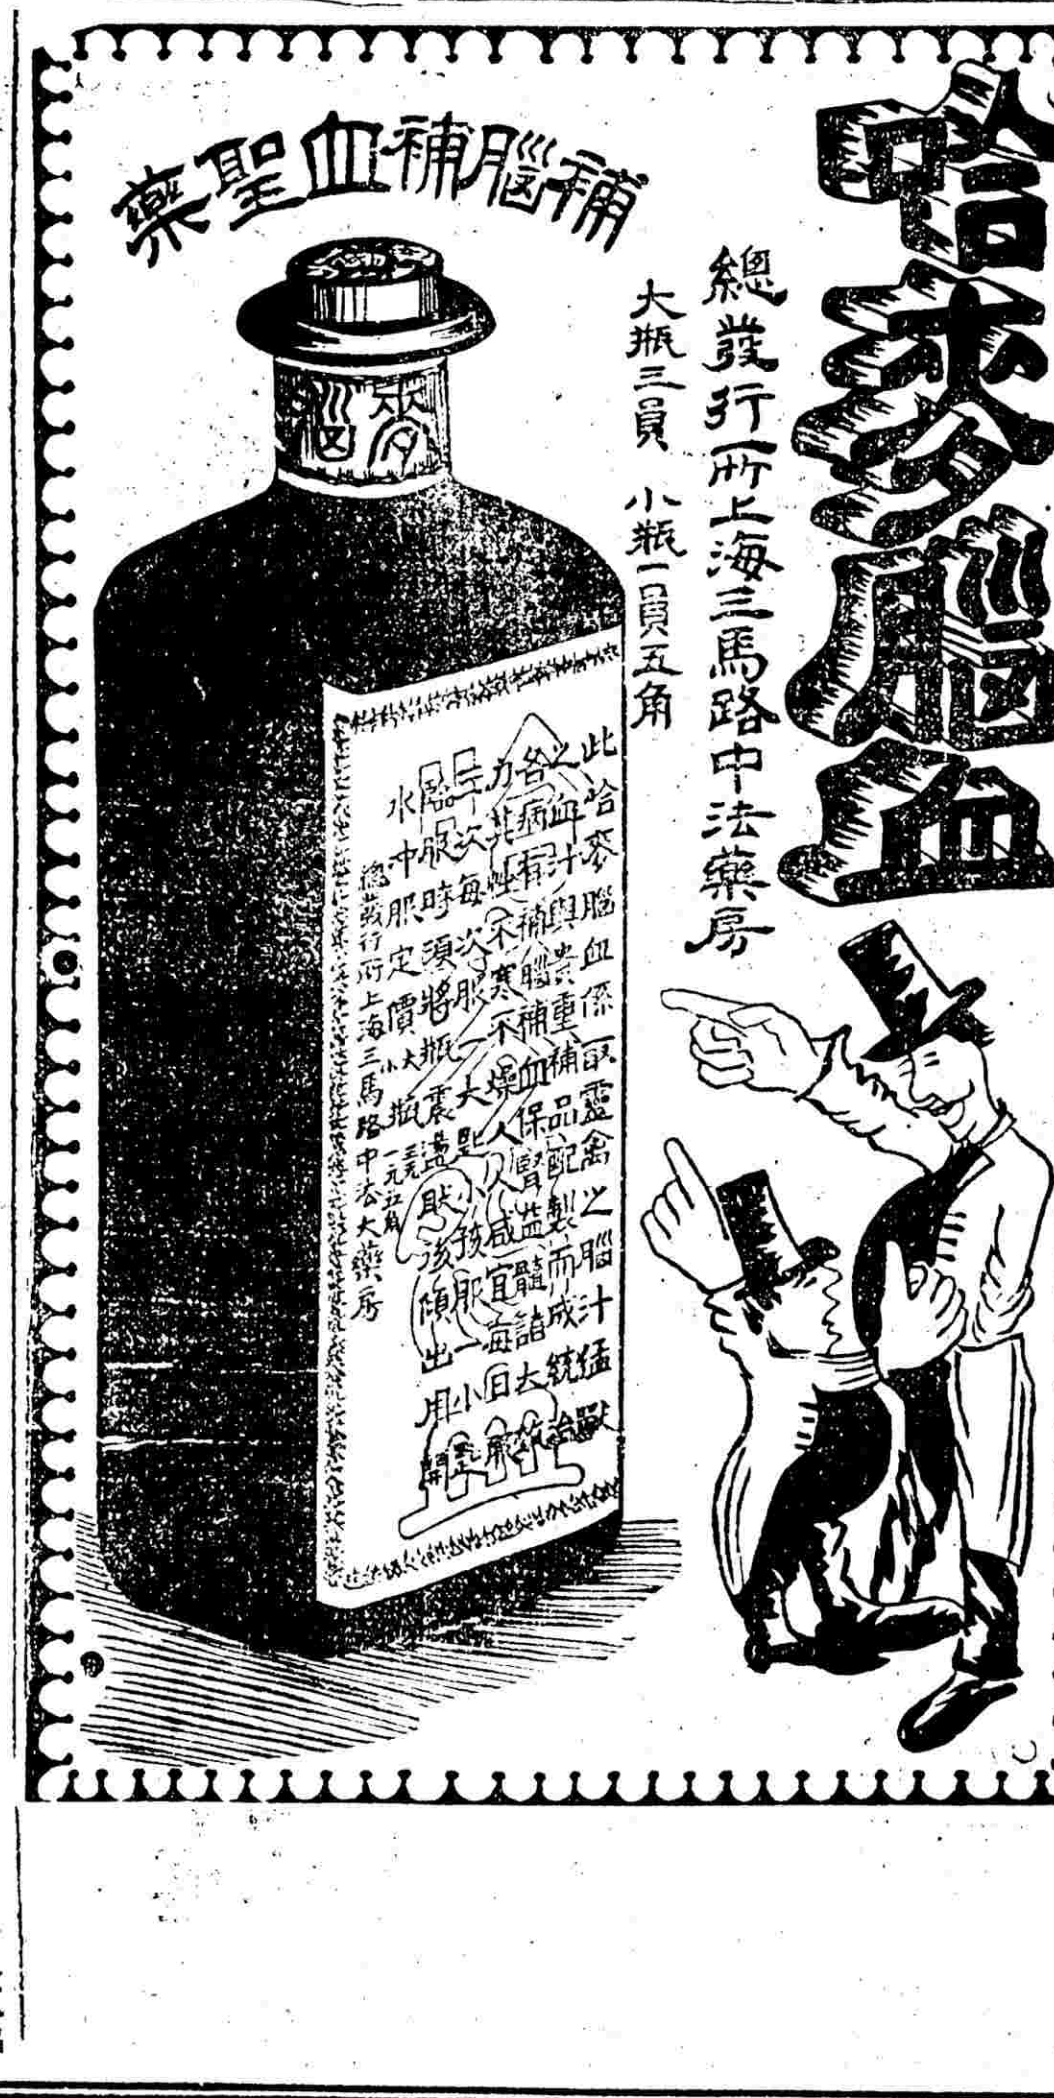 哈麥腦血
總發行所上海三馬路中法藥房
大瓶三員 小瓶一員五角
補腦補血聖藥
麥腦
此哈麥腦血係取靈禽之腦汁猛獸
之血汁與貴重補品配製而成統治
各病有補腦補血保腎益髓諸大
力其性不寒不燥人人咸宜每日服
三次每次服一大匙小孩服一小匙
臨服時須將瓶震盪然後傾出用開
水冲服定價大瓶三元小瓶一元五角
總發行所上海三馬路中法大藥房